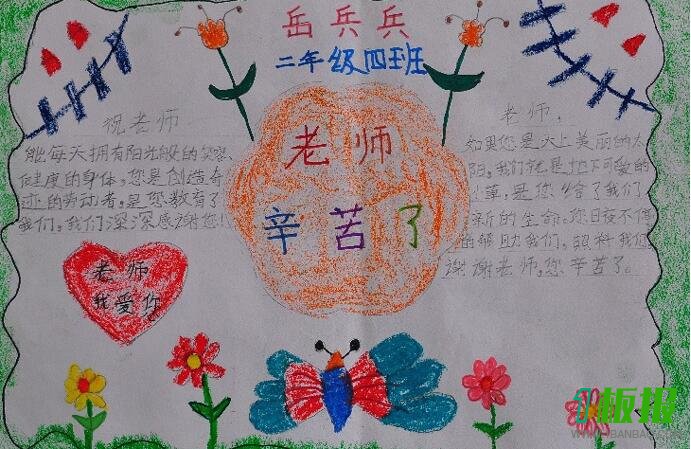 岳兵兵
二年级四班
老师
辛苦了
祝老师
能每天拥有阳光般的笑容,
健康的身体,您是创造奇
迹的劳动者,是您教育了
我们,我们深深感谢您!!
老师
我爱你
老师,
如果您是天上美丽的太
阳,我们就是地下可爱的
小草,是您给了我们
新的生命。您日夜不停
的帮助我们,照料我们
谢谢老师,您辛苦了。
板报